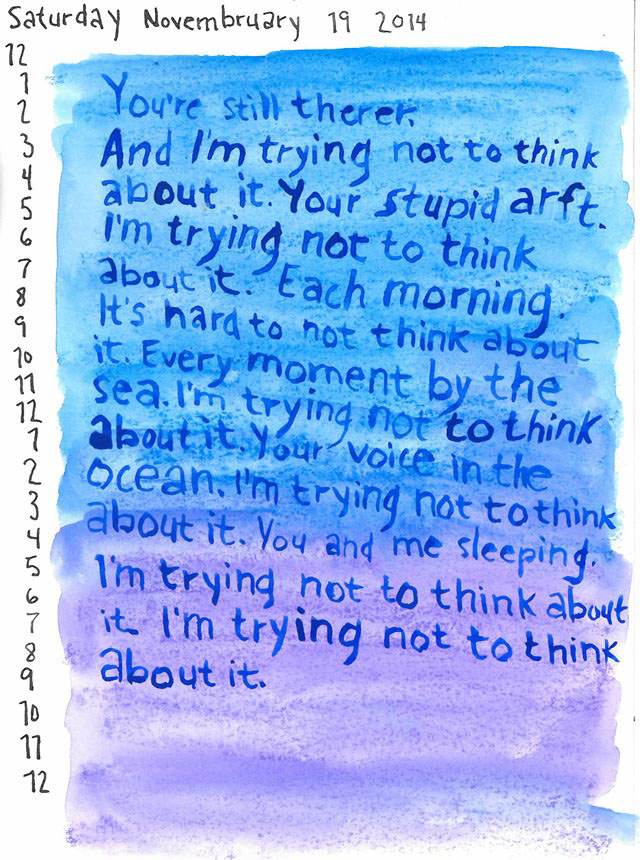 Saturday Novembruary 19 2014
12
1
2
3
4
5
6
7
8
9
10
11
12
1
2
3
4
5
6
7
8
9
10
11
12
You're still therer.
And I'm trying not to think
about it. Your stupid arft.
I'm trying not to think
about it. Each morning.
It's hard to not think about
it. Every moment by the
sea. I'm trying not to think
about it. Your voice in the
ocean. I'm trying not to think
about it. You and me sleeping.
I'm trying not to think about
it. I'm trying not to think
about it.